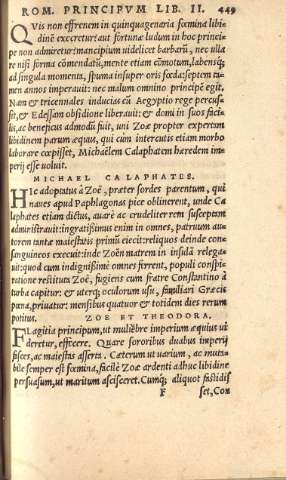 ROM. PRINCIPVM LIB. II. 449
QVis non effrenem in quinquagenaria fœmina libi-
dinē execretur: aut fortunæ ludum in hoc princi-
pe non admiretur? mancipium uidelicet barbarū, nec ulla
re nisi forma cōmendatū, mente etiam cōmotum, labensq;
ad singula momenta, spuma insuper oris fœda: septem ta-
men annos imperauit: nec malum omnino principē egit.
Nam & tricennales inducias cū Aegyptio rege percus-
sit, & Edessam obsidione liberauit: & domi in suos faci-
lis, ac beneficus admodū fuit, uni Zoæ propter expertam
libidinem parum æquus, qui cum intercutis etiam morbo
laborare cœpisset, Michaëlem Calaphatem hæredem im-
perij esse uoluit.
MICHAEL CALAPHATES.
HIc adoptatus à Zoë, præter sordes parentum, qui
naues apud Paphlagonas pice oblinerent, unde Ca
laphates etiam dictus, auarè ac crudeliter rem susceptam
administrauit: ingratißimus enim in omnes, patruum au-
torem tantæ maiestatis primū eiecit: reliquos deinde con-
sanguineos execuit: inde Zoën matrem in insulā relega-
uit: quod cum indignißimè omnes ferrent, populi conspi-
ratione restituta Zoë, fugiens cum fratre Constantino à
turba capitur: & uterq; oculorum usu, familiari Græcis
pœna, priuatur: mensibus quatuor & totidem dies rerum
potitus.
ZOE ET THEODORA.
FLagitia principum, ut muliebre imperium æquius ui
deretur, effecere. Quare sororibus duabus imperij
fasces, ac maiestas asserta. Cæterum ut uarium, ac muta-
bile semper est fœmina, facilè Zoæ ardenti adhuc libidine
persuasum, ut maritum ascisceret. Cumq; aliquot fastidis
F
set, Con